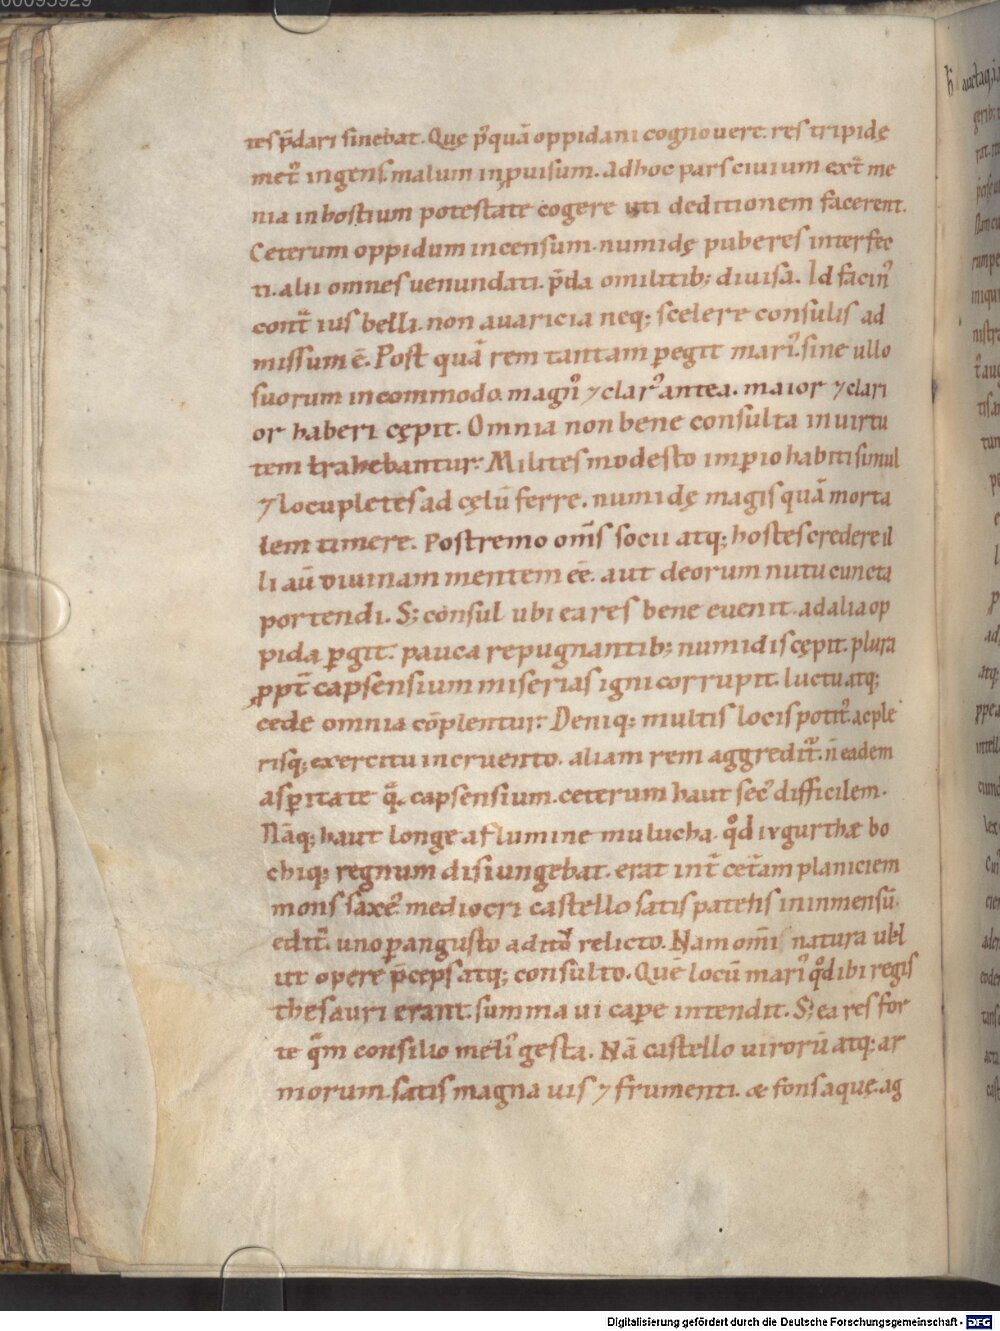 00095929
tes p̄dari sinebat. Quę p̓quā oppidani cognouere. res tripidę
met᷒ ingens. malum inꝓuisum. adhoc pars ciuium ext̄ me
nia in hostium potestate cogere uti deditionem facerent.
Ceterum oppidum incensum. numidę puberes interfec
ti. alii omnes uenundati. p̄da militib; diuisa. Id facin᷒
contᷓ ius belli. non auaricia neq; scelere consulis ad
missum ē. Post quā rem tantam ꝑegit mari᷒. sine ullo
suorum incommodo. magn᷒ ⁊ clar᷒ antea. maior ⁊ clari
or haberi cępit. Omnia non bene consulta in uirtu
tem trahebantur. Milites modesto imꝑio habiti simul
⁊ locupletes ad cęlū ferre. numidę magis quā morta
lem timere. Postremo om̄s socii atq; hostes credere il
li aū diuinam mentem ēē. aut deorum nutu cuncta
portendi. S; consul ubi ea res bene euenit. ad alia op
pida ꝑgit. pauca repugnantib; numidis cępit. plura
ꝓpt̄ capsensium miserias igni corrupit. luctu atq;
cede omnia cōplentur. Deniq; multis locis potit᷒. ac ple
risq; exercitu incruento. aliam rem aggredit᷒. n̄ eadem
asꝑitate q̄ capsensium. ceterum haut sec᷒ difficilem.
Nāq; haut longe a flumine mulucha. qđ iugurthæ bo
chiq; regnum disiungebat. erat int̄ cet̄am planiciem
mons saxe᷒. mediocri castello satis patens in inmensū
edit᷒. uno ꝑangusto aditu relicto. Nam om̄is natura uĺ
ut opere p̄ceps atq; consulto. Quē locū mari᷒ qđ ibi regis
thesauri erant. summa ui caꝑe intendit. S; ea res for
te qᷓm consilio meli᷒ gesta. Nā castello uirorū atq; ar
morum. satis magna uis ⁊ frumenti. & fons aquę. ag
Digitalisierung gefördert durch die Deutsche Forschungsgemeinschaft - DFG